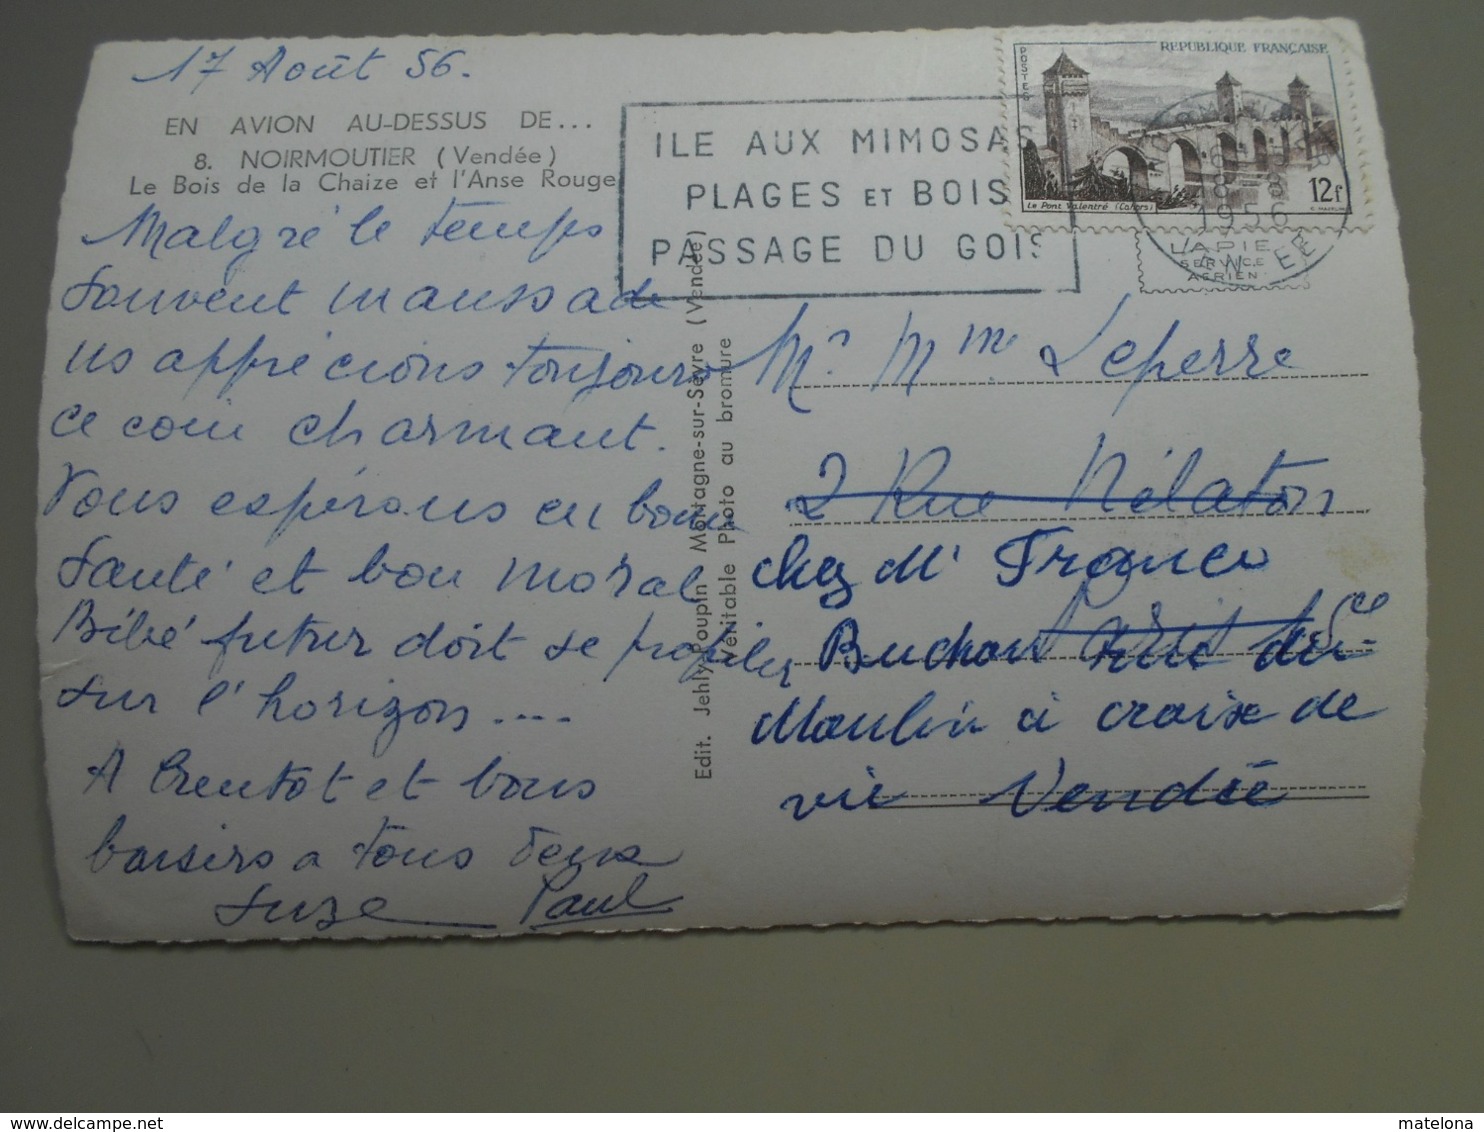 17 Août 56.
EN AVION AU-DESSUS DE...
8. NOIRMOUTIER (Vendée)
Le Bois de la Chaize et l'Anse Rouge
Malgré le temps
souvent maussade
ns apprécions toujours
ce coin charmant.
Vous espérons en bonne
santé et bon moral
Bébé futur doit se profiler
sur l'horizon....
A bientot et bons
baisers a tous deux
Suze Paul
Edit. Jehly-Poupin - Montagne-sur-Sèvre (Vendée)
Véritable Photo au bromure
ILE AUX MIMOSAS
PLAGES ET BOIS
PASSAGE DU GOIS
REPUBLIQUE FRANÇAISE
POSTES
Le Pont Valentré (Cahors)
12f
1956
LAPIE
SERVICE
AERIEN
Mr Mme Leperre
2 Rue Nélaton
chez Mr Franco
Buchou rue du
Moulin à croix de
vie Vendée
matelona